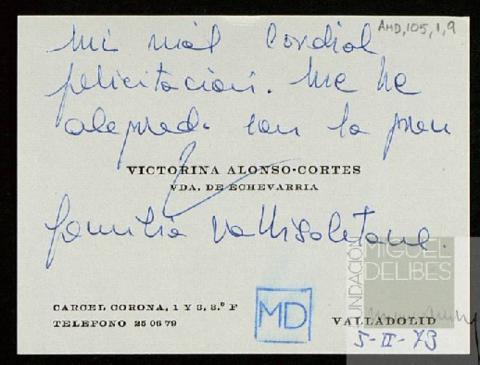 AMD,105,1,9
Mi más cordial
felicitación. Me he
alegrado con la gran
VICTORINA ALONSO-CORTES
VDA. DE ECHEVARRIA
familia vallisoletana.
CARCEL CORONA, 1 Y 3, 8.º F
TELEFONO 25 06 79
MD
VALLADOLID
5-II-73
FUNDACIÓN
MIGUEL
DELIBES